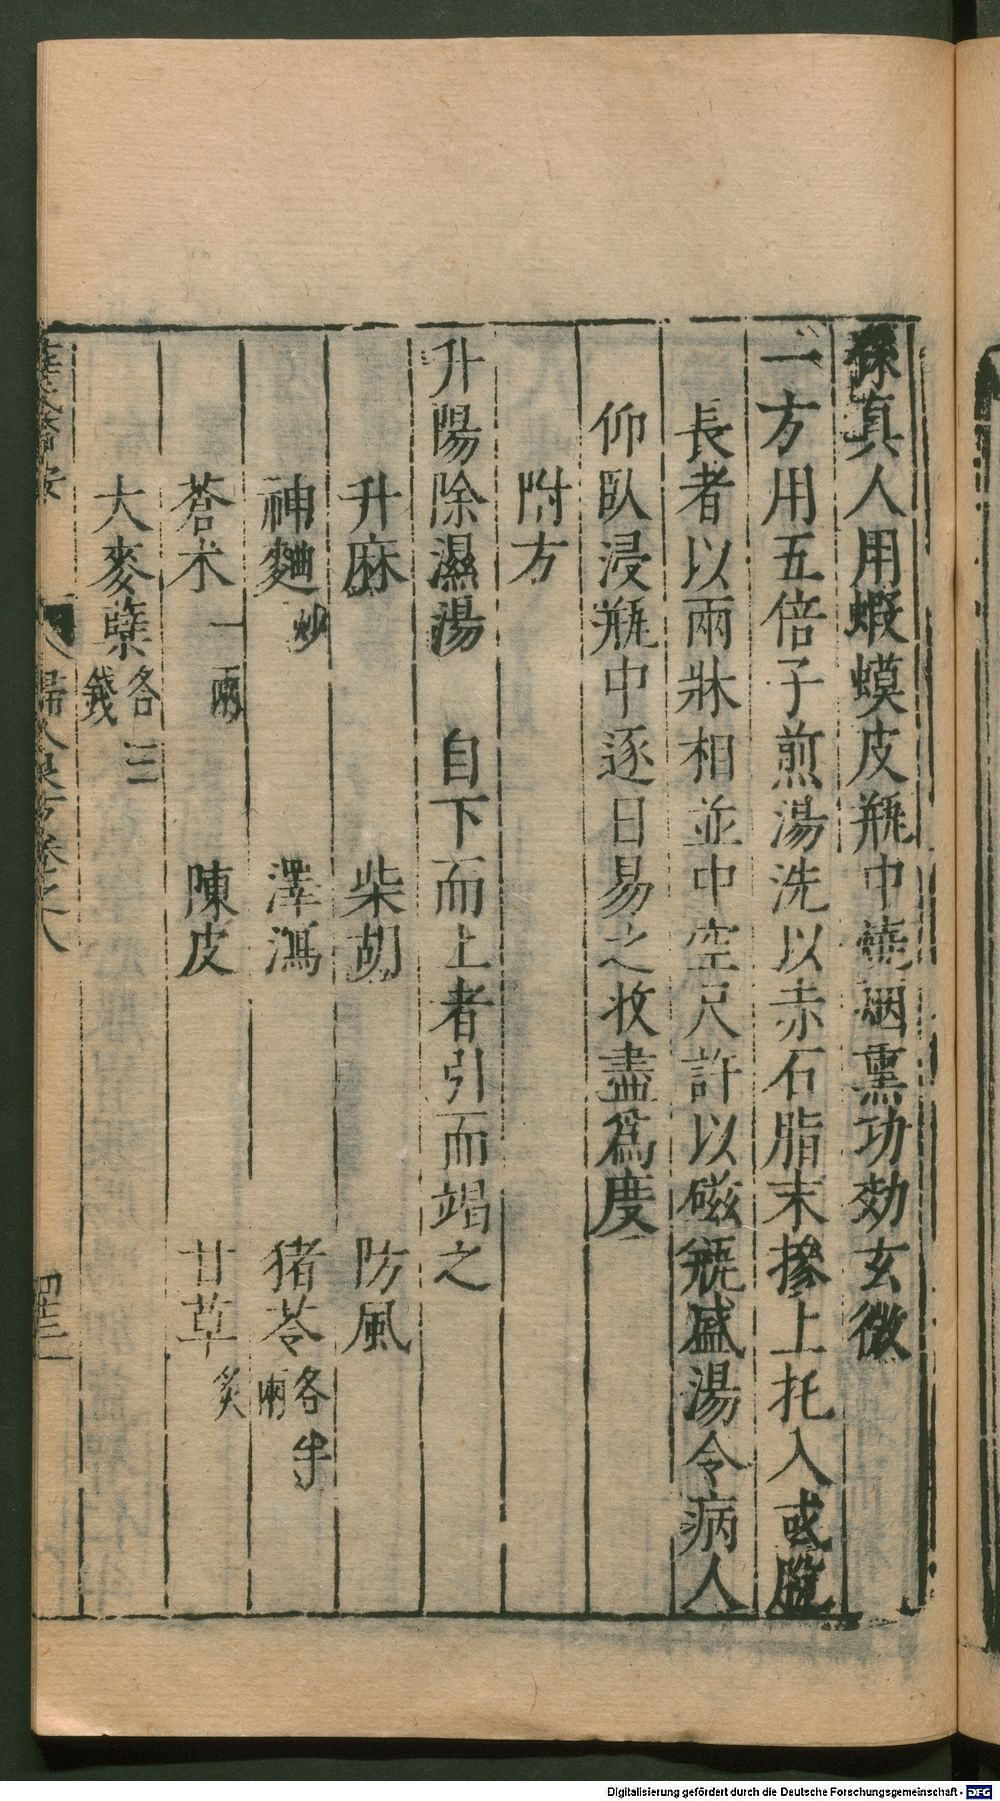 孫真人用蝦蟆皮瓶中燒烟熏功効玄微
一方用五倍子煎湯洗以赤石脂末摻上托入或脫
長者以兩牀相並中空尺許以磁瓶盛湯令病人
仰臥浸瓶中逐日易之收盡爲度
附方
升陽除濕湯 自下而上者引而竭之
升麻 柴胡 防風
神麯炒 澤瀉 猪苓各半兩
蒼术一兩 陳皮 甘草炙
大麥蘖各三錢
婦人良方卷之八
Digitalisierung gefördert durch die Deutsche Forschungsgemeinschaft - DFG